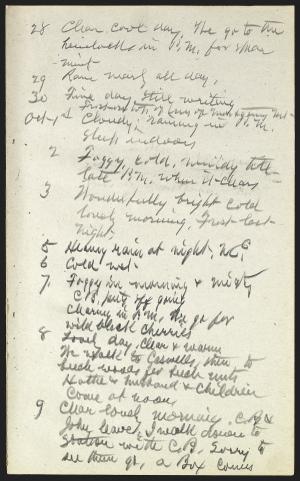 28 Clear cool day, We go to the
hemlocks in P.M. for spear
mint
29 Rain nearly all day,
30 Fine day, Still writing
Oct. 1st Cloudy, raining in P.M.
Sleep indoors
2 Foggy, cold, windy till
late P.M. when it clears
3 Wonderfully bright cold
lovely morning, Frost last
night
5 Heavy rain at night, N.E.
6 Cold wet
7 Foggy in morning & misty
C.B. put off going
Clearing in P.M. We go for
wild black cherries
8 Lovely day, clear & warm
We walk to Caswells, then to
beech woods for beech nuts
husband & children
Come at noon
9 Clear lovely morning. C.B. &
John leave, I walk down to
station with C.B. Sorry to
see them go, a Box comes